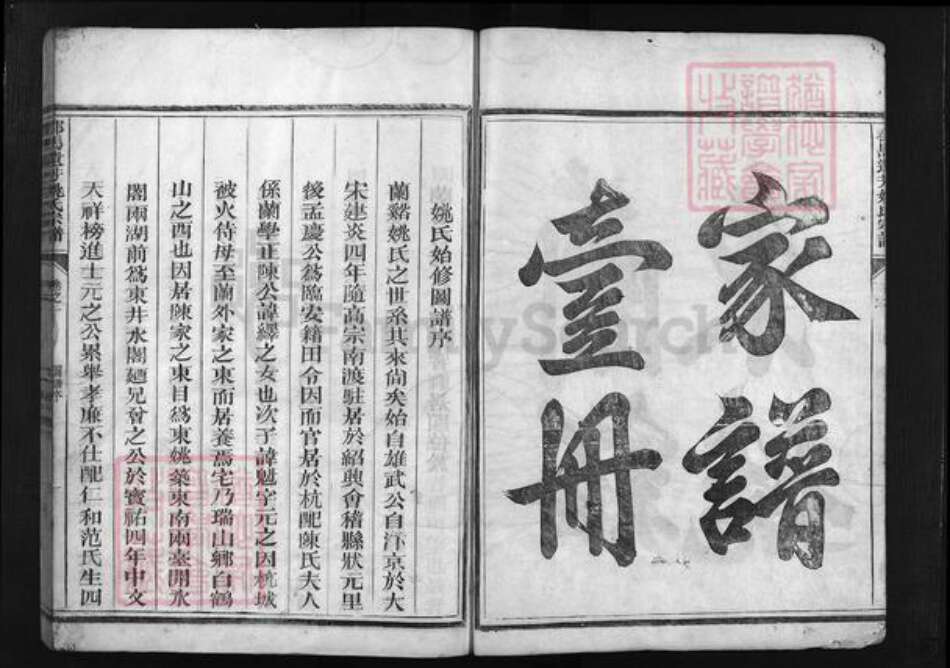 家譜
壹冊
姚氏始修圖譜序
蘭谿姚氏之世系其來尚矣始自雄武公自汴京於大
宋建炎四年隨高宗南渡駐居於紹興會稽縣狀元里
後孟慶公為臨安籍田令因而官居於杭配陳氏夫人
係蘭學正陳公諱繹之女也次子諱魁字元之因杭城
被火侍母至蘭外家之東而居養焉宅乃瑞山鄉白鶴
山之西也因居陳家之東目為東姚築東南兩臺開水
閣兩湖前為東井水閣廼兄會之公於寶祐四年中文
天祥榜進士元之公累舉孝廉不仕配仁和范氏生四
姚氏宗譜
FamilySearch